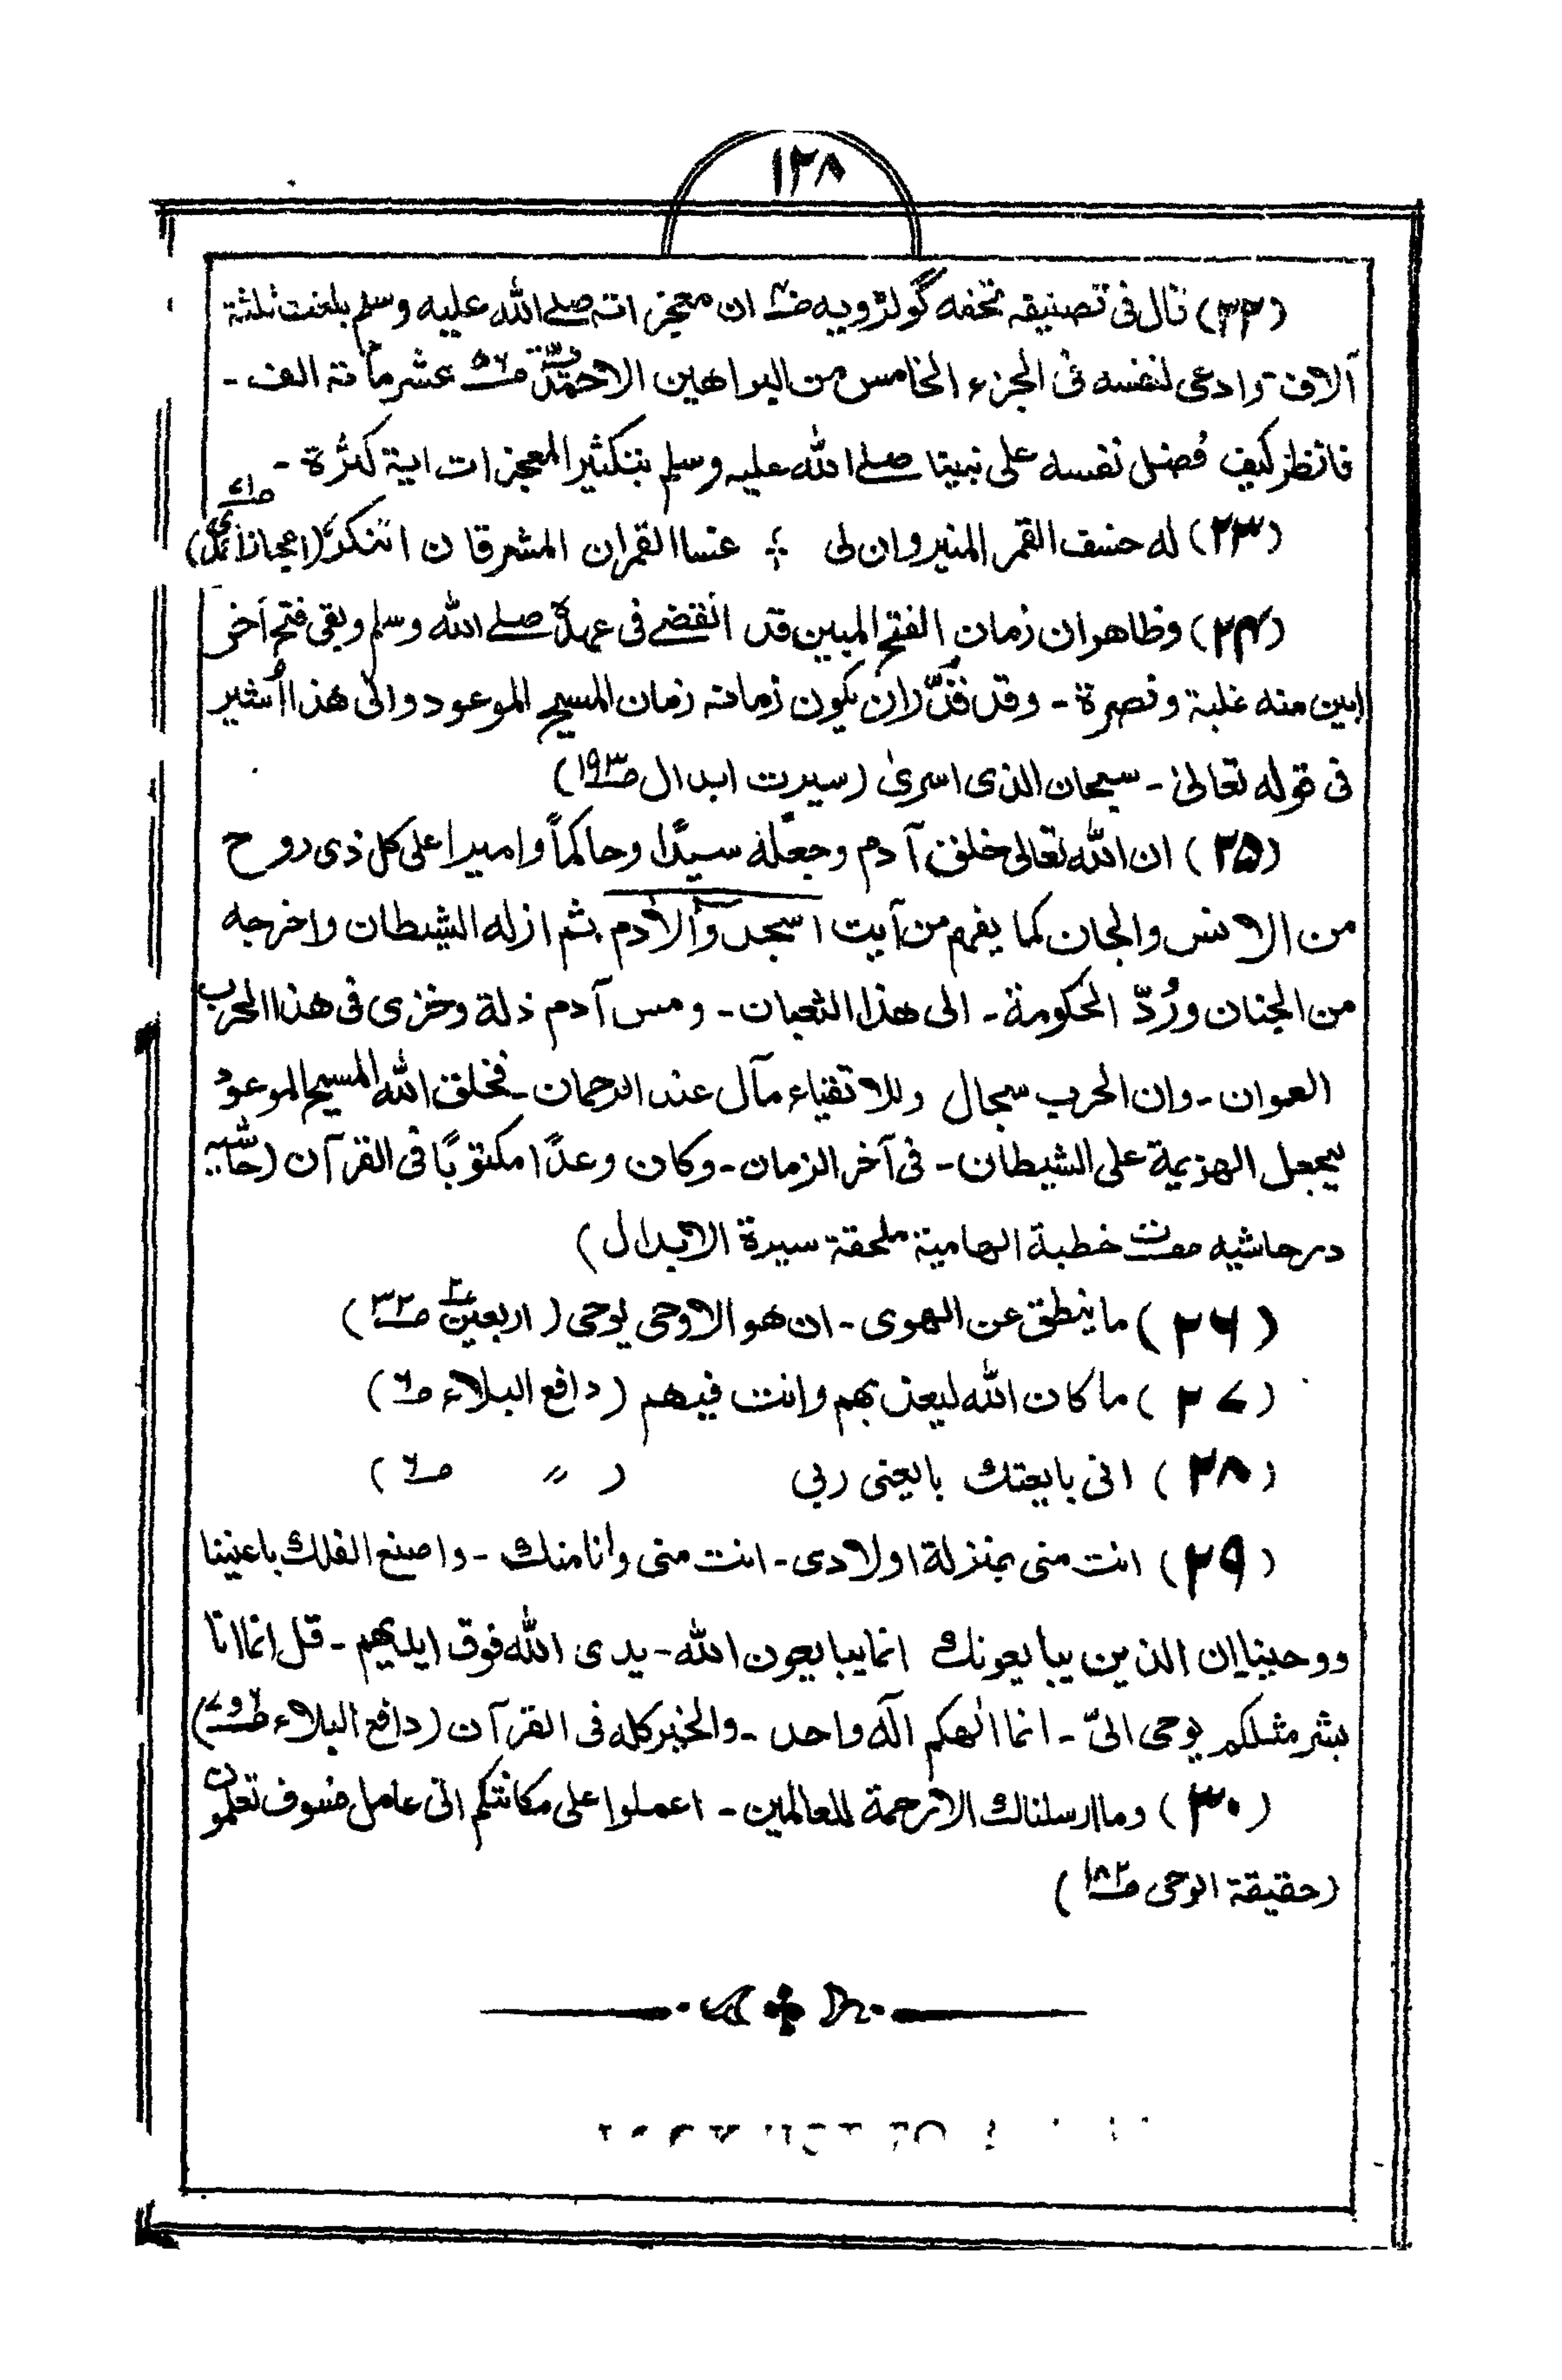 ١٢٨
(٢٢) قال فی تصنیفہ تحفہ گولڑویہ صـ٤٠ ان معجزاتہ صلے اللہ علیہ وسلم بلغت ثلثة
آلاف وادعی لنفسه فی الجزء الخامس من البراهین الاحمدیۃ صـ٥٦ عشر مائة الف -
فانظر کیف فُضل نفسه علی نبینا صلے اللہ علیہ وسلم بتکثیر المعجزات ایة کثرة -
(٢٣) له خسف القمر المنیر وان لی ؛ غسا القمران المشرقان اتنکر (اعجاز احمدی صـ٧١)
(٢٤) وظاهر ان زمان الفتح المبین قد انقضے فی عهدہٖ صلے اللہ وسلم وبقی فتح آخر
ابین منه غلبة ونصرة - وقد قُدّر ان یکون زمانه زمان المسیح الموعود والی هذا اُشیر
فی قوله تعالیٰ - سبحان الذی اسریٰ (سیرت ابدال صـ١٩٣)
(٢٥) ان اللہ تعالی خلق آدم وجعله سیدًا وحاکماً وامیرا علی کل ذی روح
من الانس والجان کما یفهم من آیت اسجدوا لآدم ثم ازله الشیطان واخرجه
من الجنان ورُدّ الحکومة - الی هذا الثعبان - ومس آدم ذلة وخزی فی هذا الحرب
العوان - وان الحرب سجال وللاتقیاء مآل عند الرحمان - فخلق اللہ المسیح الموعود
لیجعل الهزیمة علی الشیطان - فی آخر الزمان - وکان وعدًا مکتوبًا فی القرآن (حاشیہ
در حاشیه خطبة الهامیة ملحقة سیرة الابدال)
(٢٦) ما ینطق عن الهوی - ان هو الا وحی یوحی (اربعین ٣ صـ٣٢)
(٢٧) ما کان اللہ لیعذبهم وانت فیهم (دافع البلاء صـ٦)
(٢٨) انی بایعتك بایعنی ربی ( 〃 صـ٦)
(٢٩) انت منی بمنزلة اولادی - انت منی وانا منك - واصنع الفلك باعیننا
ووحینا ان الذین یبایعونك انما یبایعون اللہ - یدی اللہ فوق ایدیهم - قل انما انا
بشر مثلکم یوحی الیّ - انما الٰهکم آلٰه واحد - والخیر کله فی القرآن (دافع البلاء صـ٦و٧)
(٣٠) وما ارسلناك الا رحمة للعالمین - اعملوا علی مکانتکم انی عامل فسوف تعلمون
(حقیقة الوحی صـ٨٢)